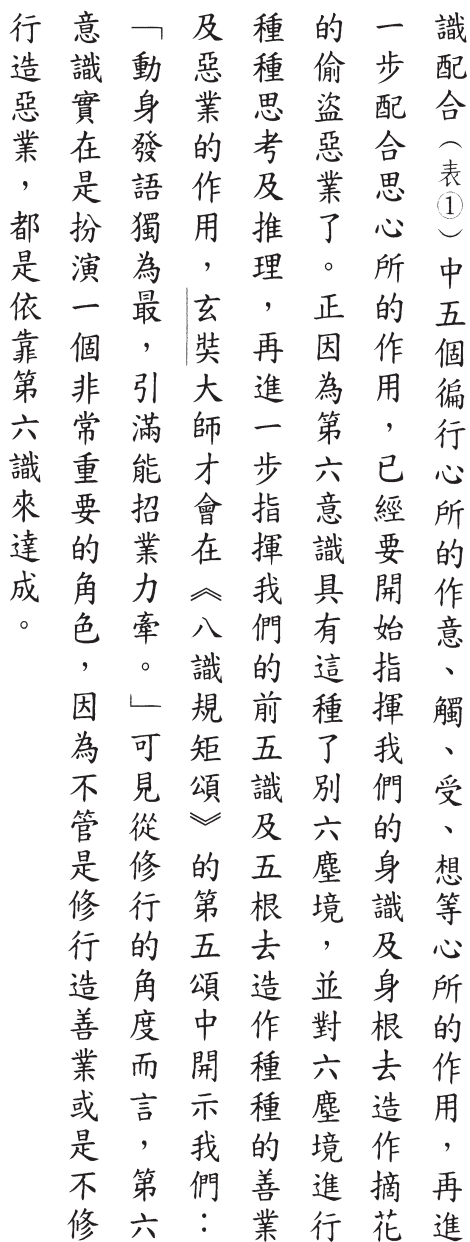 識配合（表①）中五個徧行心所的作意、觸、受、想等心所的作用，再進
一步配合思心所的作用，已經要開始指揮我們的身識及身根去造作摘花
的偷盜惡業了。正因為第六意識具有這種了別六塵境，並對六塵境進行
種種思考及推理，再進一步指揮我們的前五識及五根去造作種種的善業
及惡業的作用，玄奘大師才會在《八識規矩頌》的第五頌中開示我們：
「動身發語獨為最，引滿能招業力牽。」可見從修行的角度而言，第六
意識實在是扮演一個非常重要的角色，因為不管是修行造善業或是不修
行造惡業，都是依靠第六識來達成。